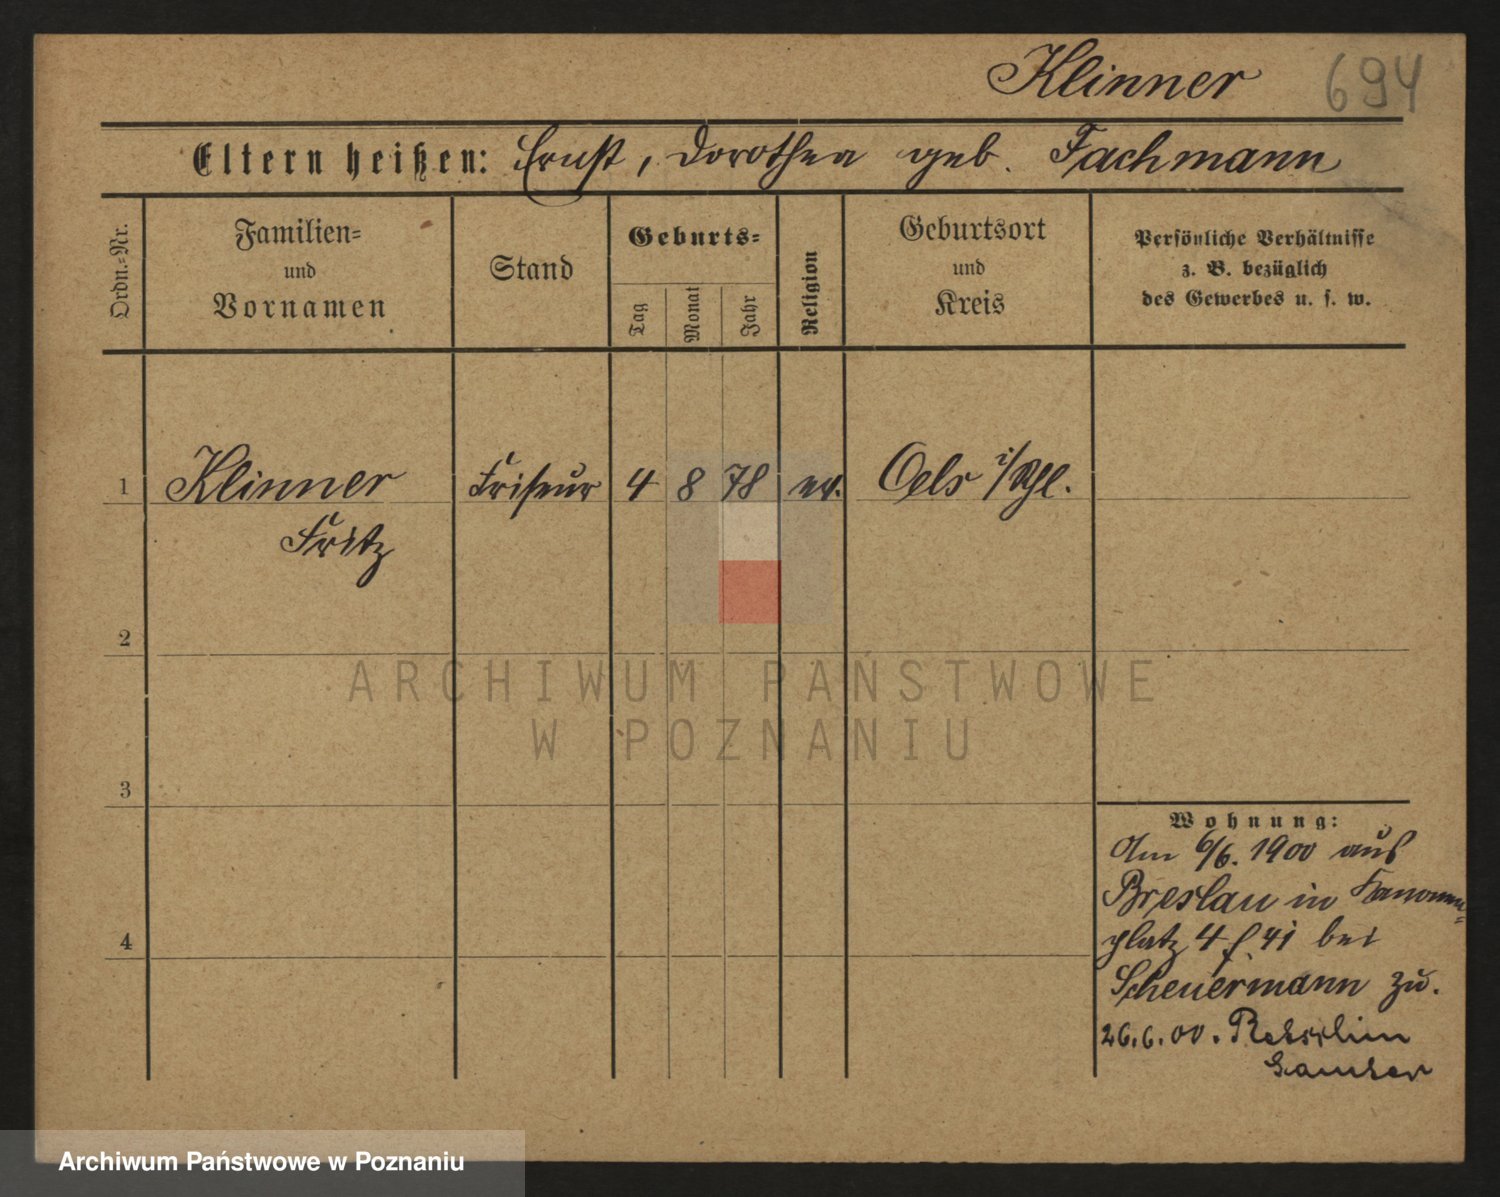 Klinner 694
Eltern heißen: Ernst, Dorothea geb. Fachmann
Ordn.=Nr.
Familien=
und
Vornamen
Stand
Geburts=
Tag
Monat
Jahr
Religion
Geburtsort
und
Kreis
Persönliche Verhältnisse
z. B. bezüglich
des Gewerbes u. s. w.
1 Klinner Friseur 4 8 78 ev. Oels i/Schl.
Fritz
2
ARCHIWUM PAŃSTWOWE
W POZNANIU
3
Wohnung:
Am 6/6. 1900 aus
Breslau in Kanonen=
platz 4 f 41 bei
4
Scheuermann zu.
26.6.00.
Archiwum Państwowe w Poznaniu